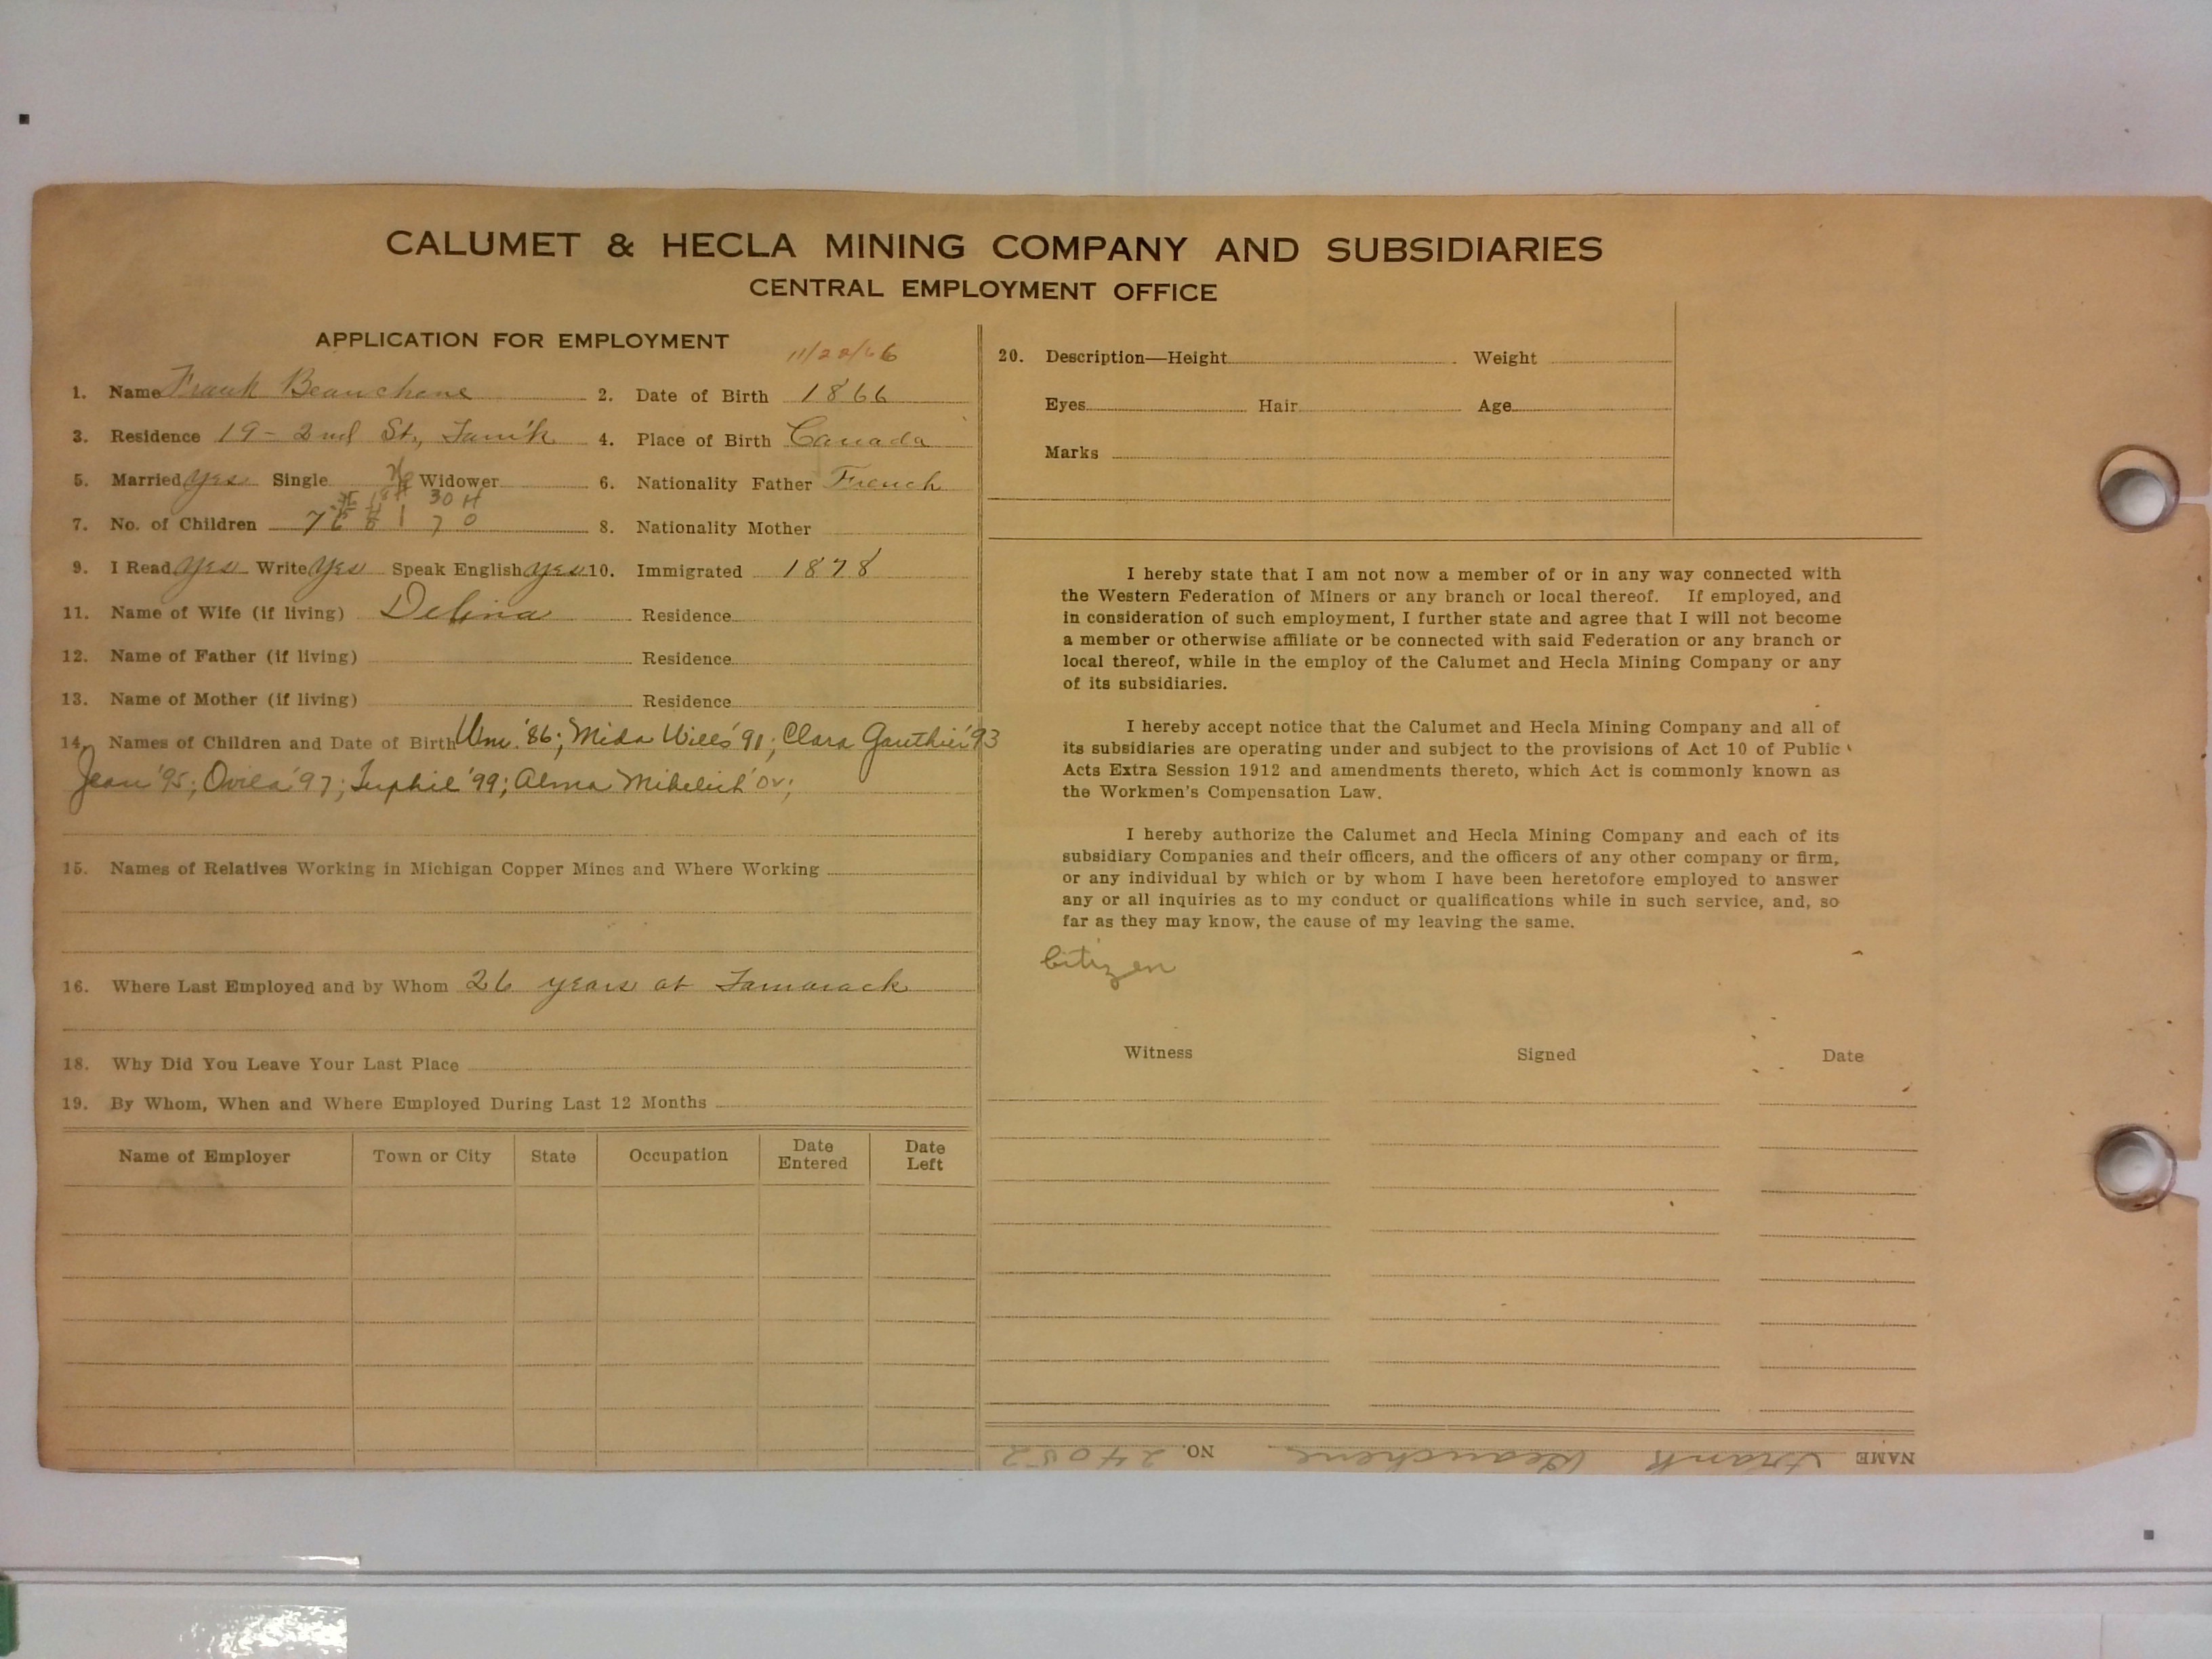 CALUMET & HECLA MINING COMPANY AND SUBSIDIARIES
CENTRAL EMPLOYMENT OFFICE
APPLICATION FOR EMPLOYMENT
1. Name Frank Beauchene 2. Date of Birth 1866
3. Residence 19-2nd St., Tam'k 4. Place of Birth Canada
5. Married Yes Single Widower 6. Nationality Father French
30 H
7. No. of Children 7 8. Nationality Mother
9. I Read Yes Write Yes Speak English Yes 10. Immigrated 1878
11. Name of Wife (if living) Delina Residence
12. Name of Father (if living) Residence
13. Name of Mother (if living) Residence
14. Names of Children and Date of Birth Wm. '86; Mida Wills '91; Clara Gauthier '93
Jean '95; Ovila '97; '99; Alma
15. Names of Relatives Working in Michigan Copper Mines and Where Working
16. Where Last Employed and by Whom 26 years at Tamarack
18. Why Did You Leave Your Last Place
19. By Whom, When and Where Employed During Last 12 Months
Name of Employer Town or City State Occupation Date Entered Date Left
20. Description—Height Weight
Eyes Hair Age
Marks
I hereby state that I am not now a member of or in any way connected with
the Western Federation of Miners or any branch or local thereof. If employed, and
in consideration of such employment, I further state and agree that I will not become
a member or otherwise affiliate or be connected with said Federation or any branch or
local thereof, while in the employ of the Calumet and Hecla Mining Company or any
of its subsidiaries.
I hereby accept notice that the Calumet and Hecla Mining Company and all of
its subsidiaries are operating under and subject to the provisions of Act 10 of Public
Acts Extra Session 1912 and amendments thereto, which Act is commonly known as
the Workmen's Compensation Law.
I hereby authorize the Calumet and Hecla Mining Company and each of its
subsidiary Companies and their officers, and the officers of any other company or firm,
or any individual by which or by whom I have been heretofore employed to answer
any or all inquiries as to my conduct or qualifications while in such service, and, so
far as they may know, the cause of my leaving the same.
Citizen
Witness Signed Date
NAME Frank Beauchene NO. 24052